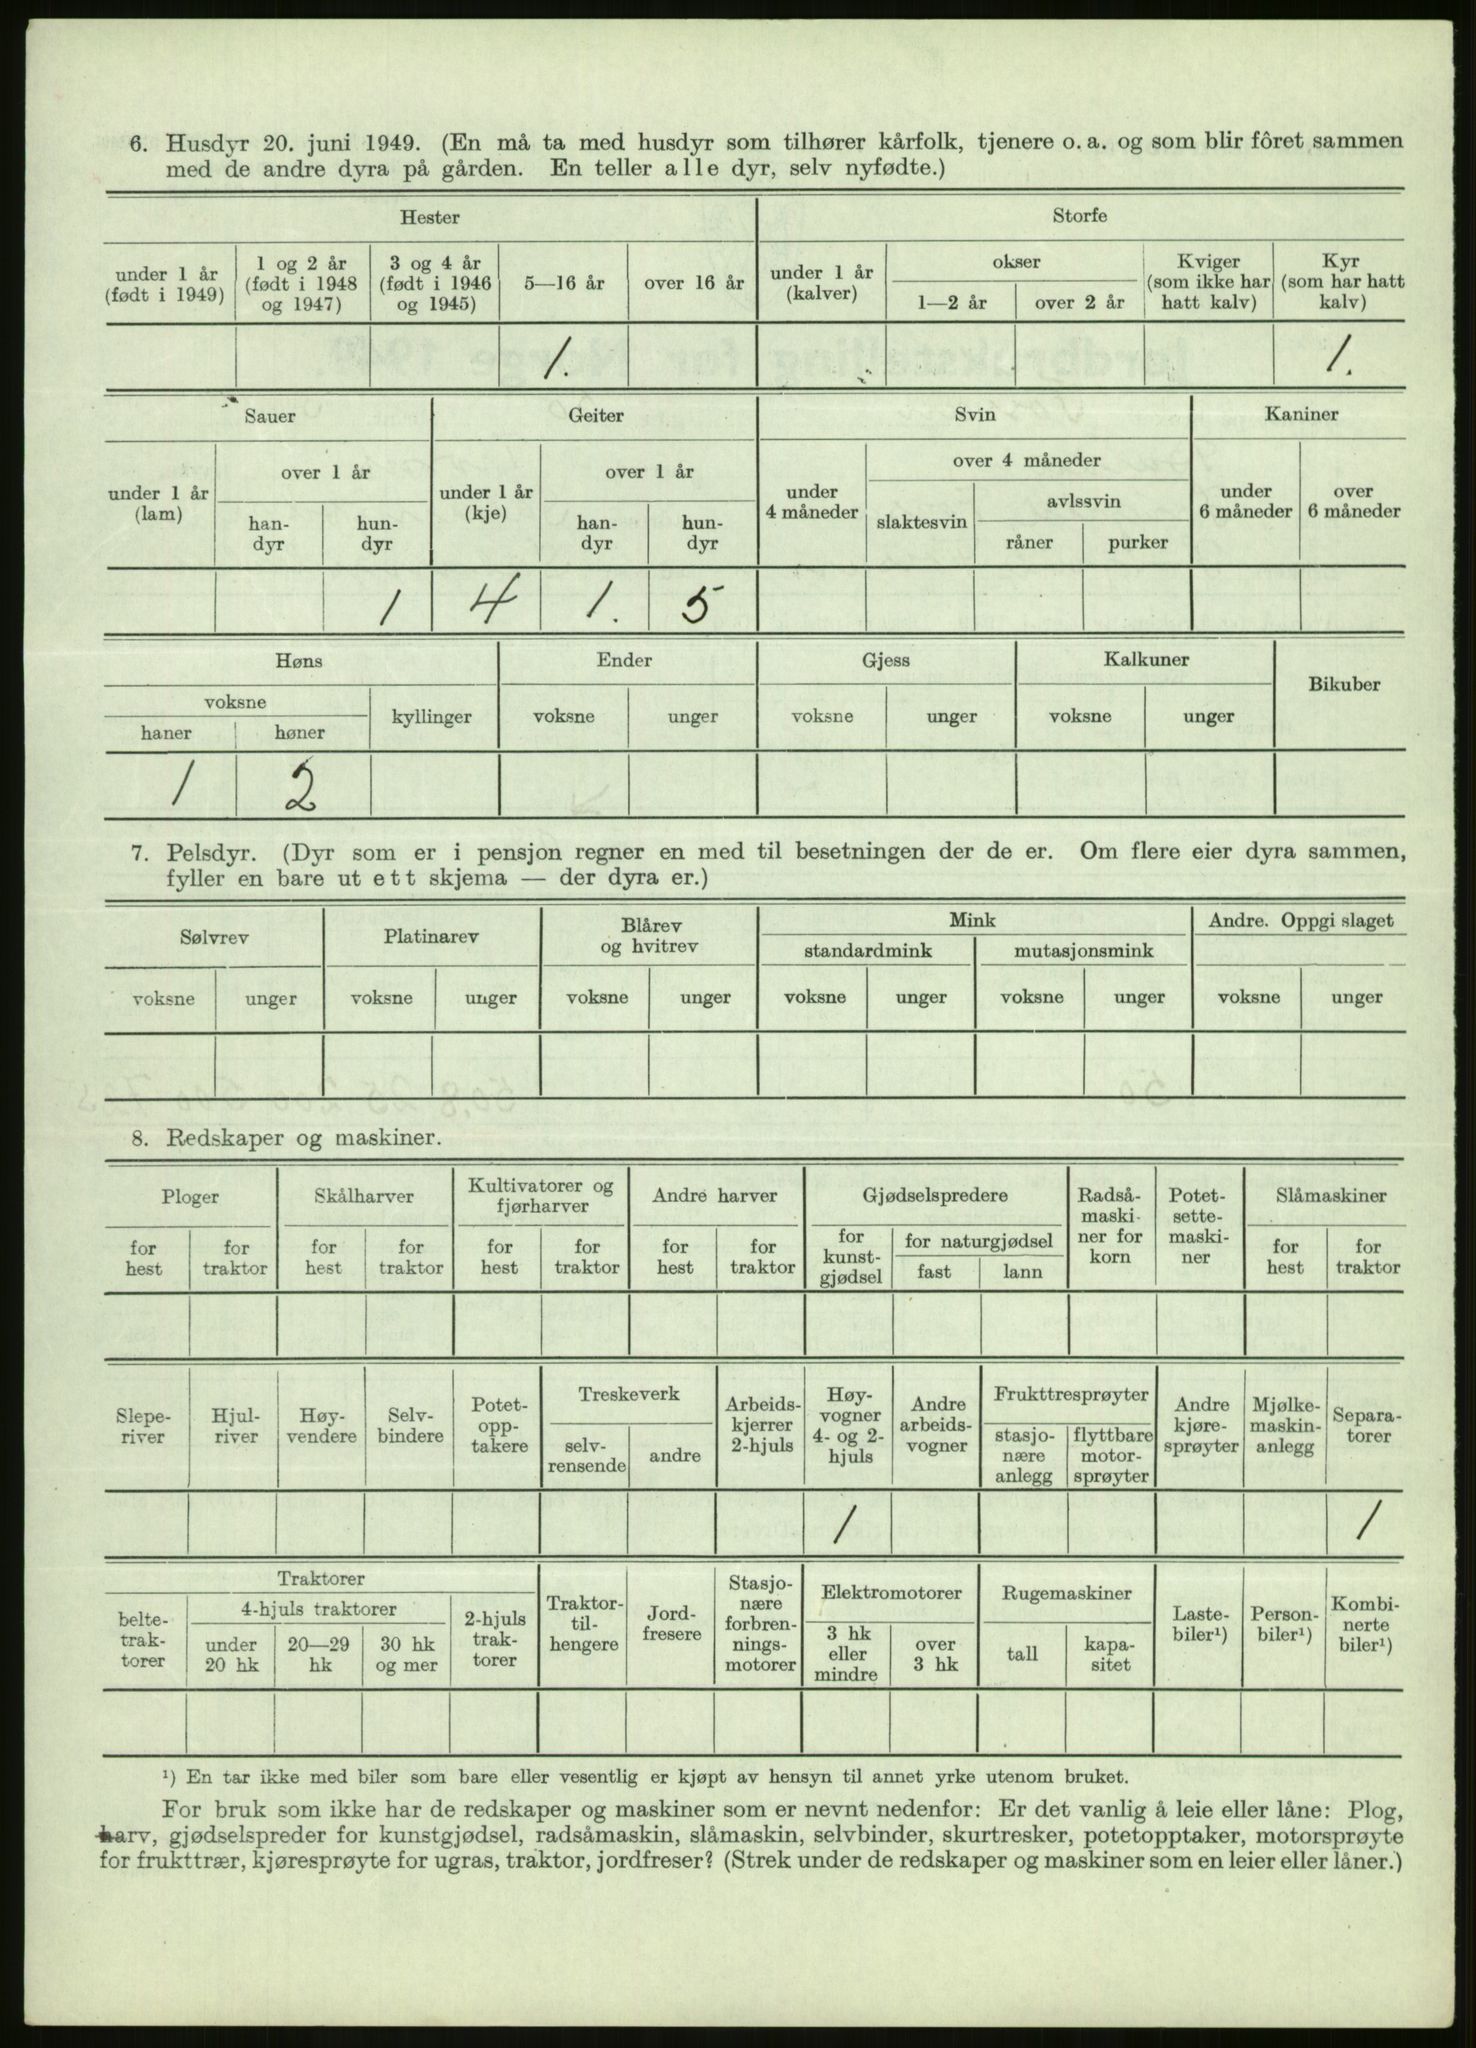 6. Husdyr 20. juni 1949. (En må ta med husdyr som tilhører kårfolk, tjenere o. a. og som blir fôret sammen
med de andre dyra på gården. En teller alle dyr, selv nyfødte.)
Hester Storfe
under 1 år (født i 1949) 1 og 2 år (født i 1948 og 1947) 3 og 4 år (født i 1946 og 1945) 5—16 år over 16 år under 1 år (kalver) okser 1—2 år over 2 år Kviger (som ikke har hatt kalv) Kyr (som har hatt kalv)
1. 1.
Sauer Geiter Svin Kaniner
under 1 år (lam) over 1 år han-dyr hun-dyr under 1 år (kje) over 1 år han-dyr hun-dyr under 4 måneder over 4 måneder slaktesvin avlssvin råner purker under 6 måneder over 6 måneder
1 4 1. 5
Høns Ender Gjess Kalkuner Bikuber
voksne haner høner kyllinger voksne unger voksne unger voksne unger
1 2
7. Pelsdyr. (Dyr som er i pensjon regner en med til besetningen der de er. Om flere eier dyra sammen,
fyller en bare ut ett skjema — der dyra er.)
Sølvrev Platinarev Blårev og hvitrev Mink Andre. Oppgi slaget
standardmink mutasjonsmink
voksne unger voksne unger voksne unger voksne unger voksne unger voksne unger
8. Redskaper og maskiner.
Ploger Skålharver Kultivatorer og fjørharver Andre harver Gjødselspredere Radså-maski-ner for korn Potet-sette-maski-ner Slåmaskiner
for hest for traktor for hest for traktor for hest for traktor for hest for traktor for kunst-gjødsel for naturgjødsel fast lann for hest for traktor
Slepe-river Hjul-river Høy-vendere Selv-bindere Potet-opp-takere Treskeverk selv-rensende andre Arbeids-kjerrer 2-hjuls Høy-vogner 4- og 2-hjuls Andre arbeids-vogner Frukttresprøyter stasjo-nære anlegg flyttbare motor-sprøyter Andre kjøre-sprøyter Mjølke-maskin-anlegg Separa-torer
1 1
Traktorer Traktor-til-hengere Jord-fresere Stasjo-nære forbren-nings-motorer Elektromotorer Rugemaskiner Laste-biler¹) Person-biler¹) Kombi-nerte biler¹)
belte-trak-torer 4-hjuls traktorer under 20 hk 20—29 hk 30 hk og mer 2-hjuls trak-torer 3 hk eller mindre over 3 hk tall kapa-sitet
¹) En tar ikke med biler som bare eller vesentlig er kjøpt av hensyn til annet yrke utenom bruket.
For bruk som ikke har de redskaper og maskiner som er nevnt nedenfor: Er det vanlig å leie eller låne: Plog,
harv, gjødselspreder for kunstgjødsel, radsåmaskin, slåmaskin, selvbinder, skurtresker, potetopptaker, motorsprøyte
for frukttrær, kjøresprøyte for ugras, traktor, jordfreser? (Strek under de redskaper og maskiner som en leier eller låner.)